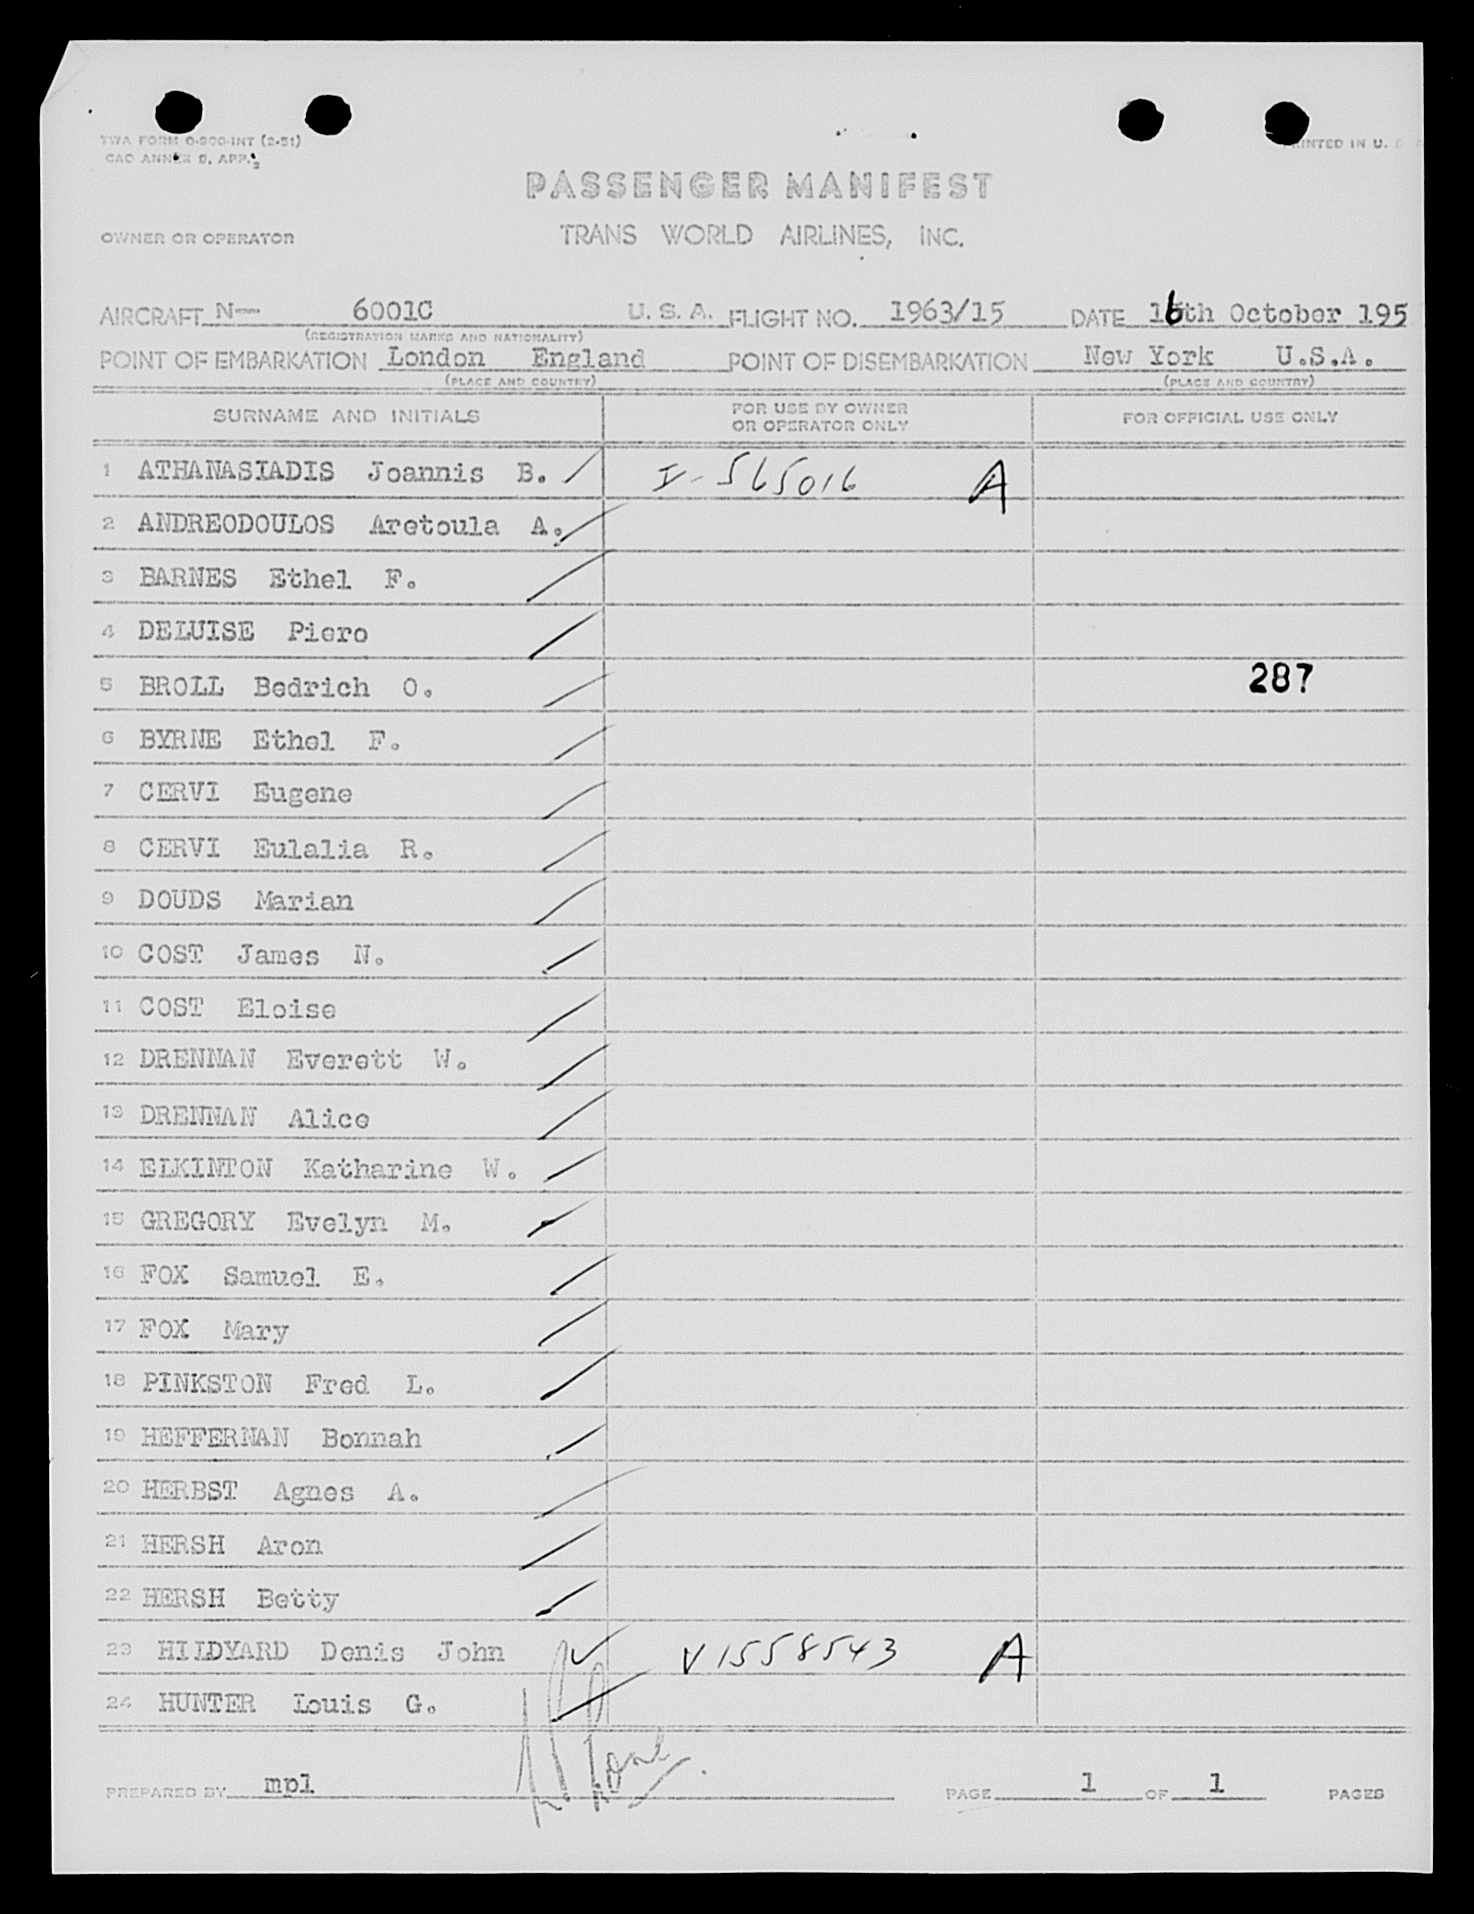 TWA FORM O-900-INT (2-51)
CAO ANNEX 9, APP. 2
PRINTED IN U. S.
PASSENGER MANIFEST
OWNER OR OPERATOR TRANS WORLD AIRLINES, INC.
AIRCRAFT N— 6001C U. S. A. FLIGHT NO. 1963/15 DATE 16th October 195
(REGISTRATION MARKS AND NATIONALITY)
POINT OF EMBARKATION London England POINT OF DISEMBARKATION New York U.S.A.
(PLACE AND COUNTRY) (PLACE AND COUNTRY)
SURNAME AND INITIALS FOR USE BY OWNER OR OPERATOR ONLY FOR OFFICIAL USE ONLY
1 ATHANASIADIS Joannis B. I-565016 A
2 ANDREODOULOS Aretoula A.
3 BARNES Ethel F.
4 DELUISE Piero
5 BROLL Bedrich O. 287
6 BYRNE Ethel F.
7 CERVI Eugene
8 CERVI Eulalia R.
9 DOUDS Marian
10 COST James N.
11 COST Eloise
12 DRENNAN Everett W.
13 DRENNAN Alice
14 ELKINTON Katharine W.
15 GREGORY Evelyn M.
16 FOX Samuel E.
17 FOX Mary
18 PINKSTON Fred L.
19 HEFFERNAN Bonnah
20 HERBST Agnes A.
21 HERSH Aron
22 HERSH Betty
23 HILDYARD Denis John V1558543 A
24 HUNTER Louis G.
PREPARED BY mpl PAGE 1 OF 1 PAGES